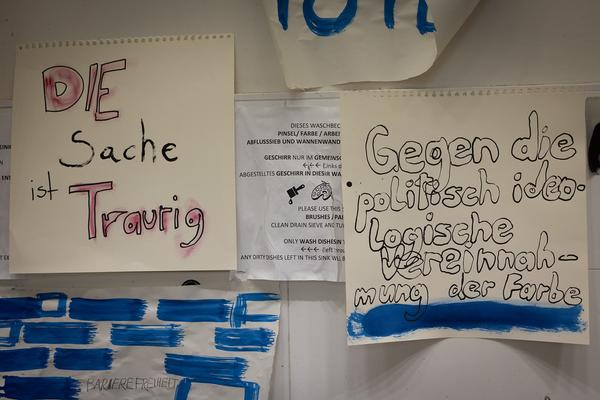 DIE
Sache
ist Traurig
DIESES WASCHBEC
PINSEL/ FARBE / ARBEI
ABFLUSSSIEB UND WANNENWAND
GESCHIRR NUR IM GEMEINSC
←←← Links d
ABGESTELLTES GESCHIRR IN DIESER WA
PLEASE USE THIS S
BRUSHES / PA
CLEAN DRAIN SIEVE AND TU
ONLY WASH DISHES IN T
←←← (left
ANY DIRTY DISHES LEFT IN THIS SINK WILL B
Gegen die
politisch ideo-
logische
Vereinnah-
mung der Farbe
BARIEREFREIHEIT